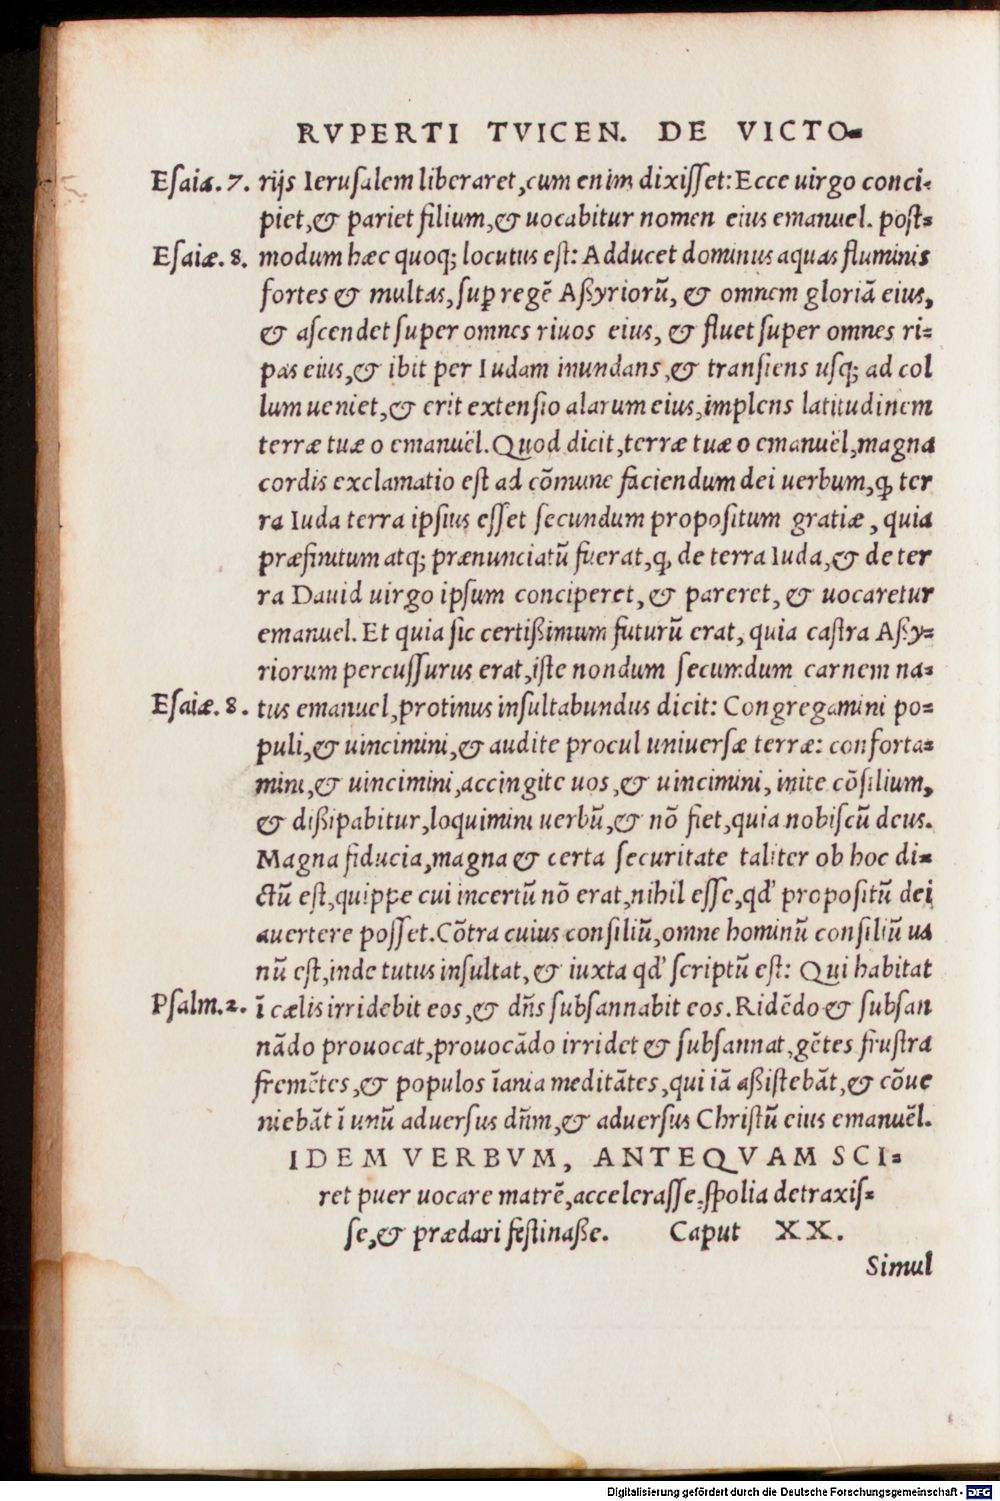 RVPERTI TVICEN. DE VICTO-
Esaiæ. 7. rijs Ierusalem liberaret, cum enim dixisset: Ecce uirgo conci-
piet, & pariet filium, & uocabitur nomen eius emanuel. post-
Esaiæ. 8. modum hæc quoq; locutus est: Adducet dominus aquas fluminis
fortes & multas, sup regẽ Aßyriorũ, & omnem gloriã eius,
& ascendet super omnes riuos eius, & fluet super omnes ri-
pas eius, & ibit per Iudam inundans, & transiens usq; ad col
lum ueniet, & erit extensio alarum eius, implens latitudinem
terræ tuæ o emanuël. Quod dicit, terræ tuæ o emanuël, magna
cordis exclamatio est ad cõmune faciendum dei uerbum, ꝙ ter
ra Iuda terra ipsius esset secundum propositum gratiæ, quia
præfinitum atq; prænunciatũ fuerat, ꝙ de terra Iuda, & de ter
ra Dauid uirgo ipsum conciperet, & pareret, & uocaretur
emanuel. Et quia sic certißimum futurũ erat, quia castra Aßy-
riorum percussurus erat, iste nondum secundum carnem na-
Esaiæ. 8. tus emanuel, protinus insultabundus dicit: Congregamini po-
puli, & uincimini, & audite procul uniuersæ terræ: conforta-
mini, & uincimini, accingite uos, & uincimini, inite cõsilium,
& dißipabitur, loquimini uerbũ, & nõ fiet, quia nobiscũ deus.
Magna fiducia, magna & certa securitate taliter ob hoc di-
ctũ est, quippe cui incertũ nõ erat, nihil esse, qd' propositũ dei
auertere posset. Cõtra cuius consiliũ, omne hominũ consiliũ ua
nũ est, inde tutus insultat, & iuxta qd' scriptũ est: Qui habitat
Psalm. 2. ĩ cælis irridebit eos, & dñs subsannabit eos. Ridẽdo & subsan
nãdo prouocat, prouocãdo irridet & subsannat, gẽtes frustra
fremẽtes, & populos ĩania meditãtes, qui iã aßistebãt, & cõue
niebãt ĩ unũ aduersus dñm, & aduersus Christũ eius emanuẽl.
IDEM VERBVM, ANTEQVAM SCI-
ret puer uocare matrẽ, accelerasse, spolia detraxis-
se, & prædari festinaße. Caput XX.
Simul
Digitalisierung gefördert durch die Deutsche Forschungsgemeinschaft - DFG